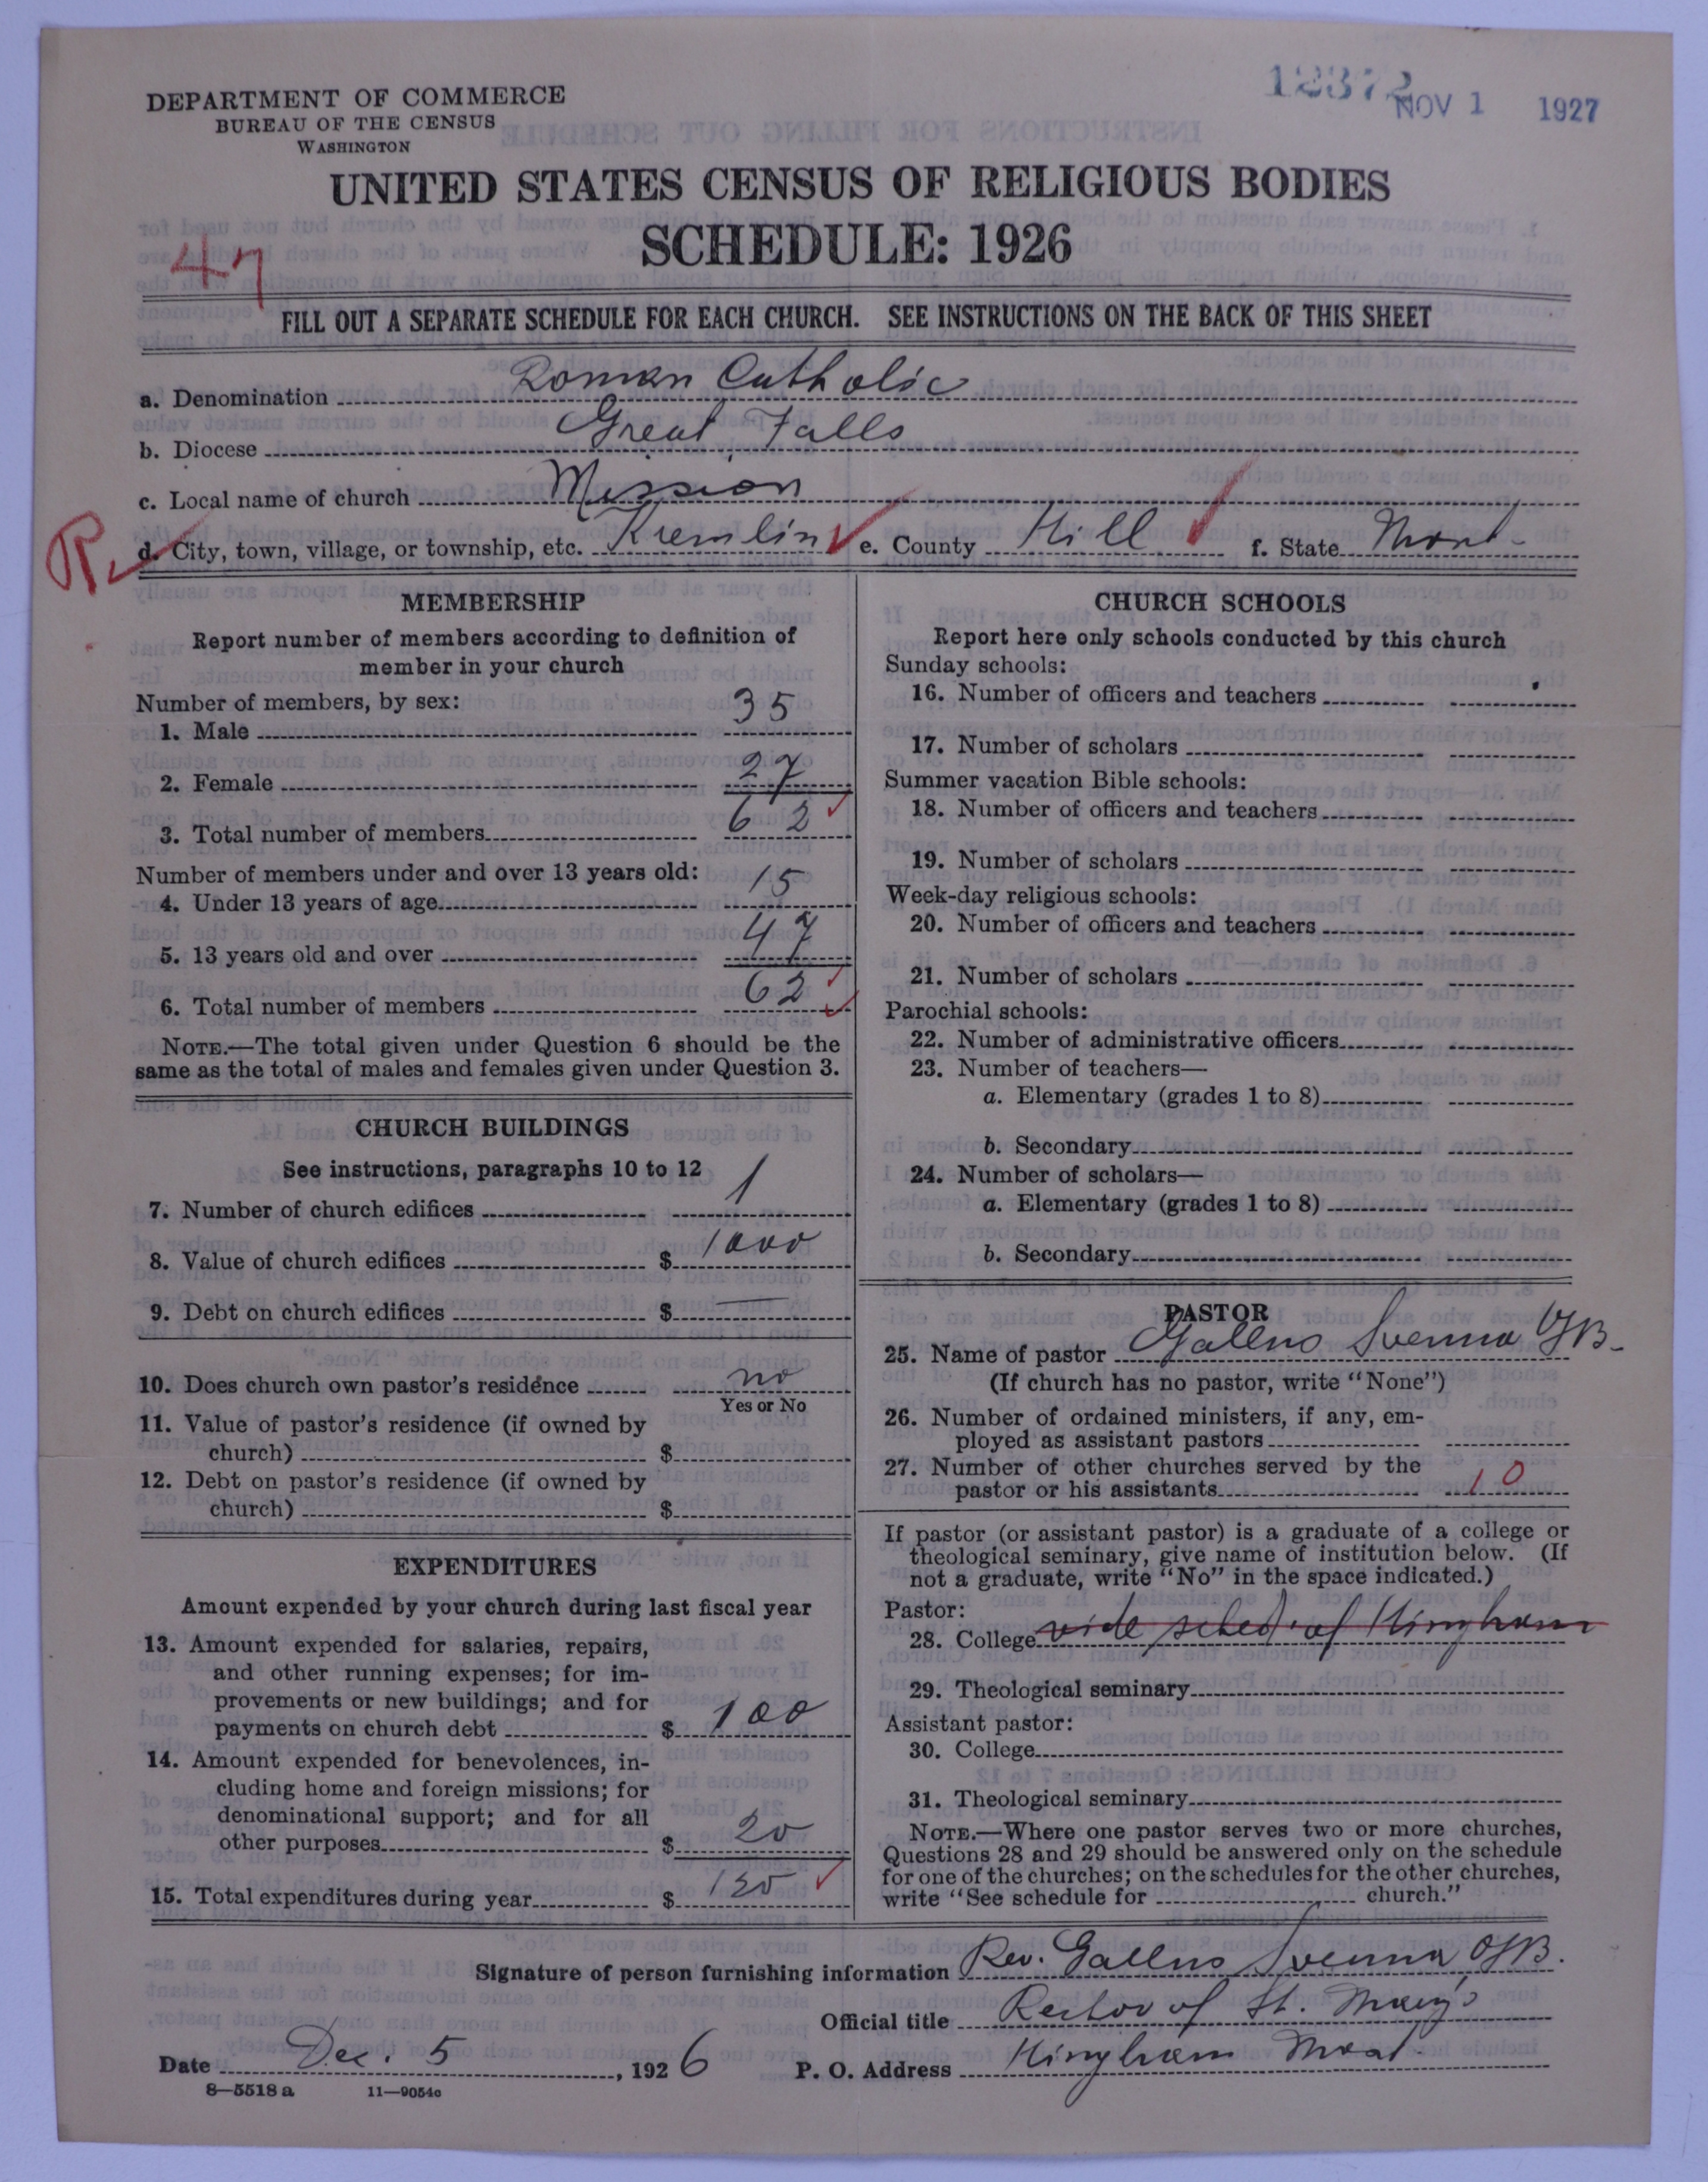 12372
NOV 1 1927
DEPARTMENT OF COMMERCE
BUREAU OF THE CENSUS
WASHINGTON
UNITED STATES CENSUS OF RELIGIOUS BODIES
SCHEDULE: 1926
47
FILL OUT A SEPARATE SCHEDULE FOR EACH CHURCH. SEE INSTRUCTIONS ON THE BACK OF THIS SHEET
a. Denomination Roman Catholic
b. Diocese Great Falls
c. Local name of church Mission
R
d. City, town, village, or township, etc. Kremlin e. County Hill f. State Mont-
MEMBERSHIP
Report number of members according to definition of
member in your church
Number of members, by sex:
1. Male 35
2. Female 27
3. Total number of members 62
Number of members under and over 13 years old:
4. Under 13 years of age 15
5. 13 years old and over 47
6. Total number of members 62
NOTE.—The total given under Question 6 should be the
same as the total of males and females given under Question 3.
CHURCH BUILDINGS
See instructions, paragraphs 10 to 12
7. Number of church edifices 1
8. Value of church edifices $ 1000
9. Debt on church edifices $ —
10. Does church own pastor's residence no
Yes or No
11. Value of pastor's residence (if owned by
church) $
12. Debt on pastor's residence (if owned by
church) $
EXPENDITURES
Amount expended by your church during last fiscal year
13. Amount expended for salaries, repairs,
and other running expenses; for im-
provements or new buildings; and for
payments on church debt $ 100
14. Amount expended for benevolences, in-
cluding home and foreign missions; for
denominational support; and for all
other purposes $ 20
15. Total expenditures during year $ 120
CHURCH SCHOOLS
Report here only schools conducted by this church
Sunday schools:
16. Number of officers and teachers
17. Number of scholars
Summer vacation Bible schools:
18. Number of officers and teachers
19. Number of scholars
Week-day religious schools:
20. Number of officers and teachers
21. Number of scholars
Parochial schools:
22. Number of administrative officers
23. Number of teachers—
a. Elementary (grades 1 to 8)
b. Secondary
24. Number of scholars—
a. Elementary (grades 1 to 8)
b. Secondary
PASTOR
25. Name of pastor Gallus
(If church has no pastor, write "None")
26. Number of ordained ministers, if any, em-
ployed as assistant pastors
27. Number of other churches served by the
pastor or his assistants 10
If pastor (or assistant pastor) is a graduate of a college or
theological seminary, give name of institution below. (If
not a graduate, write "No" in the space indicated.)
Pastor:
28. College vide sched. of Hingham
29. Theological seminary
Assistant pastor:
30. College
31. Theological seminary
NOTE.—Where one pastor serves two or more churches,
Questions 28 and 29 should be answered only on the schedule
for one of the churches; on the schedules for the other churches,
write "See schedule for church."
Signature of person furnishing information Rev. Gallus
Official title Rector of St. Mary's
Date Dec. 5, 1926 P. O. Address Hingham Mont.
8—5518 a 11—9054c